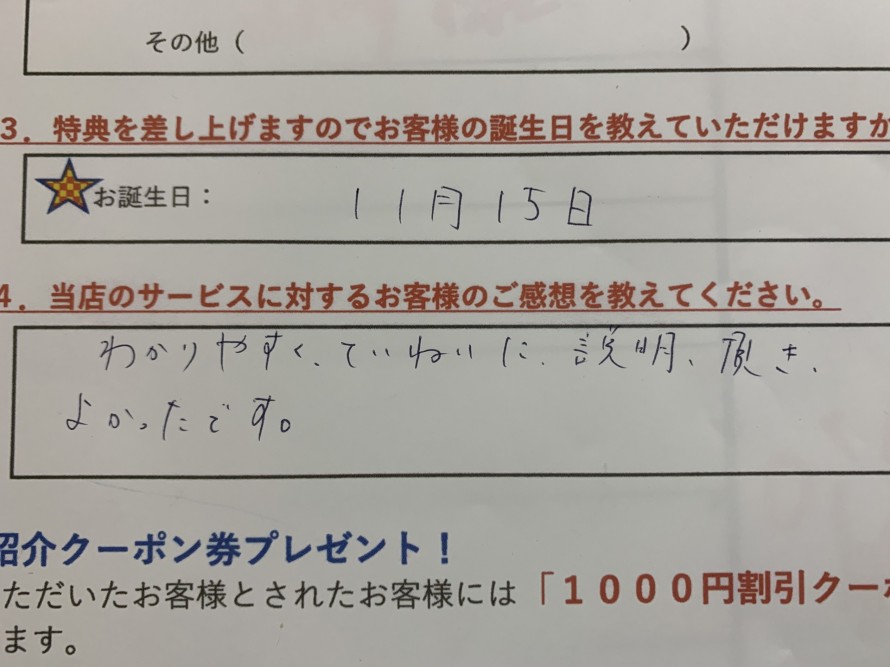 その他（　　　）
3．特典を差し上げますのでお客様の誕生日を教えていただけますか
お誕生日：　11月15日
4．当店のサービスに対するお客様のご感想を教えてください。
わかりやすく、ていねいに、説明、頂き、
よかったです。
紹介クーポン券プレゼント！
ただいたお客様とされたお客様には「１０００円割引クーポ
ます。